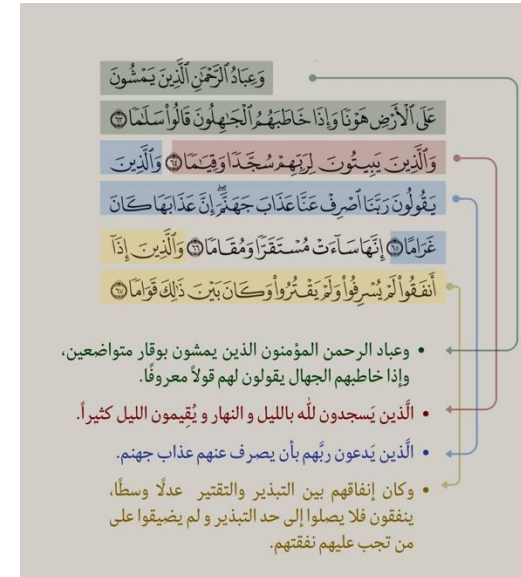 وَعِبَادُ ٱلرَّحْمَٰنِ ٱلَّذِينَ يَمْشُونَ
عَلَى ٱلْأَرْضِ هَوْنًا وَإِذَا خَاطَبَهُمُ ٱلْجَٰهِلُونَ قَالُوا۟ سَلَٰمًا ٦٣
وَٱلَّذِينَ يَبِيتُونَ لِرَبِّهِمْ سُجَّدًا وَقِيَٰمًا ٦٤ وَٱلَّذِينَ
يَقُولُونَ رَبَّنَا ٱصْرِفْ عَنَّا عَذَابَ جَهَنَّمَ ۖ إِنَّ عَذَابَهَا كَانَ
غَرَامًا ٦٥ إِنَّهَا سَآءَتْ مُسْتَقَرًّا وَمُقَامًا ٦٦ وَٱلَّذِينَ إِذَآ
أَنفَقُوا۟ لَمْ يُسْرِفُوا۟ وَلَمْ يَقْتُرُوا۟ وَكَانَ بَيْنَ ذَٰلِكَ قَوَامًا ٦٧
• وعباد الرحمن المؤمنون الذين يمشون بوقار متواضعين،
وإذا خاطبهم الجهال يقولون لهم قولاً معروفًا.
• الَّذين يَسجدون للّه بالليل و النهار و يُقِيمون الليل كثيراً.
• الَّذين يَدعون ربَّهم بأن يصرف عنهم عذاب جهنم.
• وكان إنفاقهم بين التبذير والتقتير عدلًا وسطًا،
ينفقون فلا يصلوا إلى حد التبذير و لم يضيقوا على
من تجب عليهم نفقتهم.